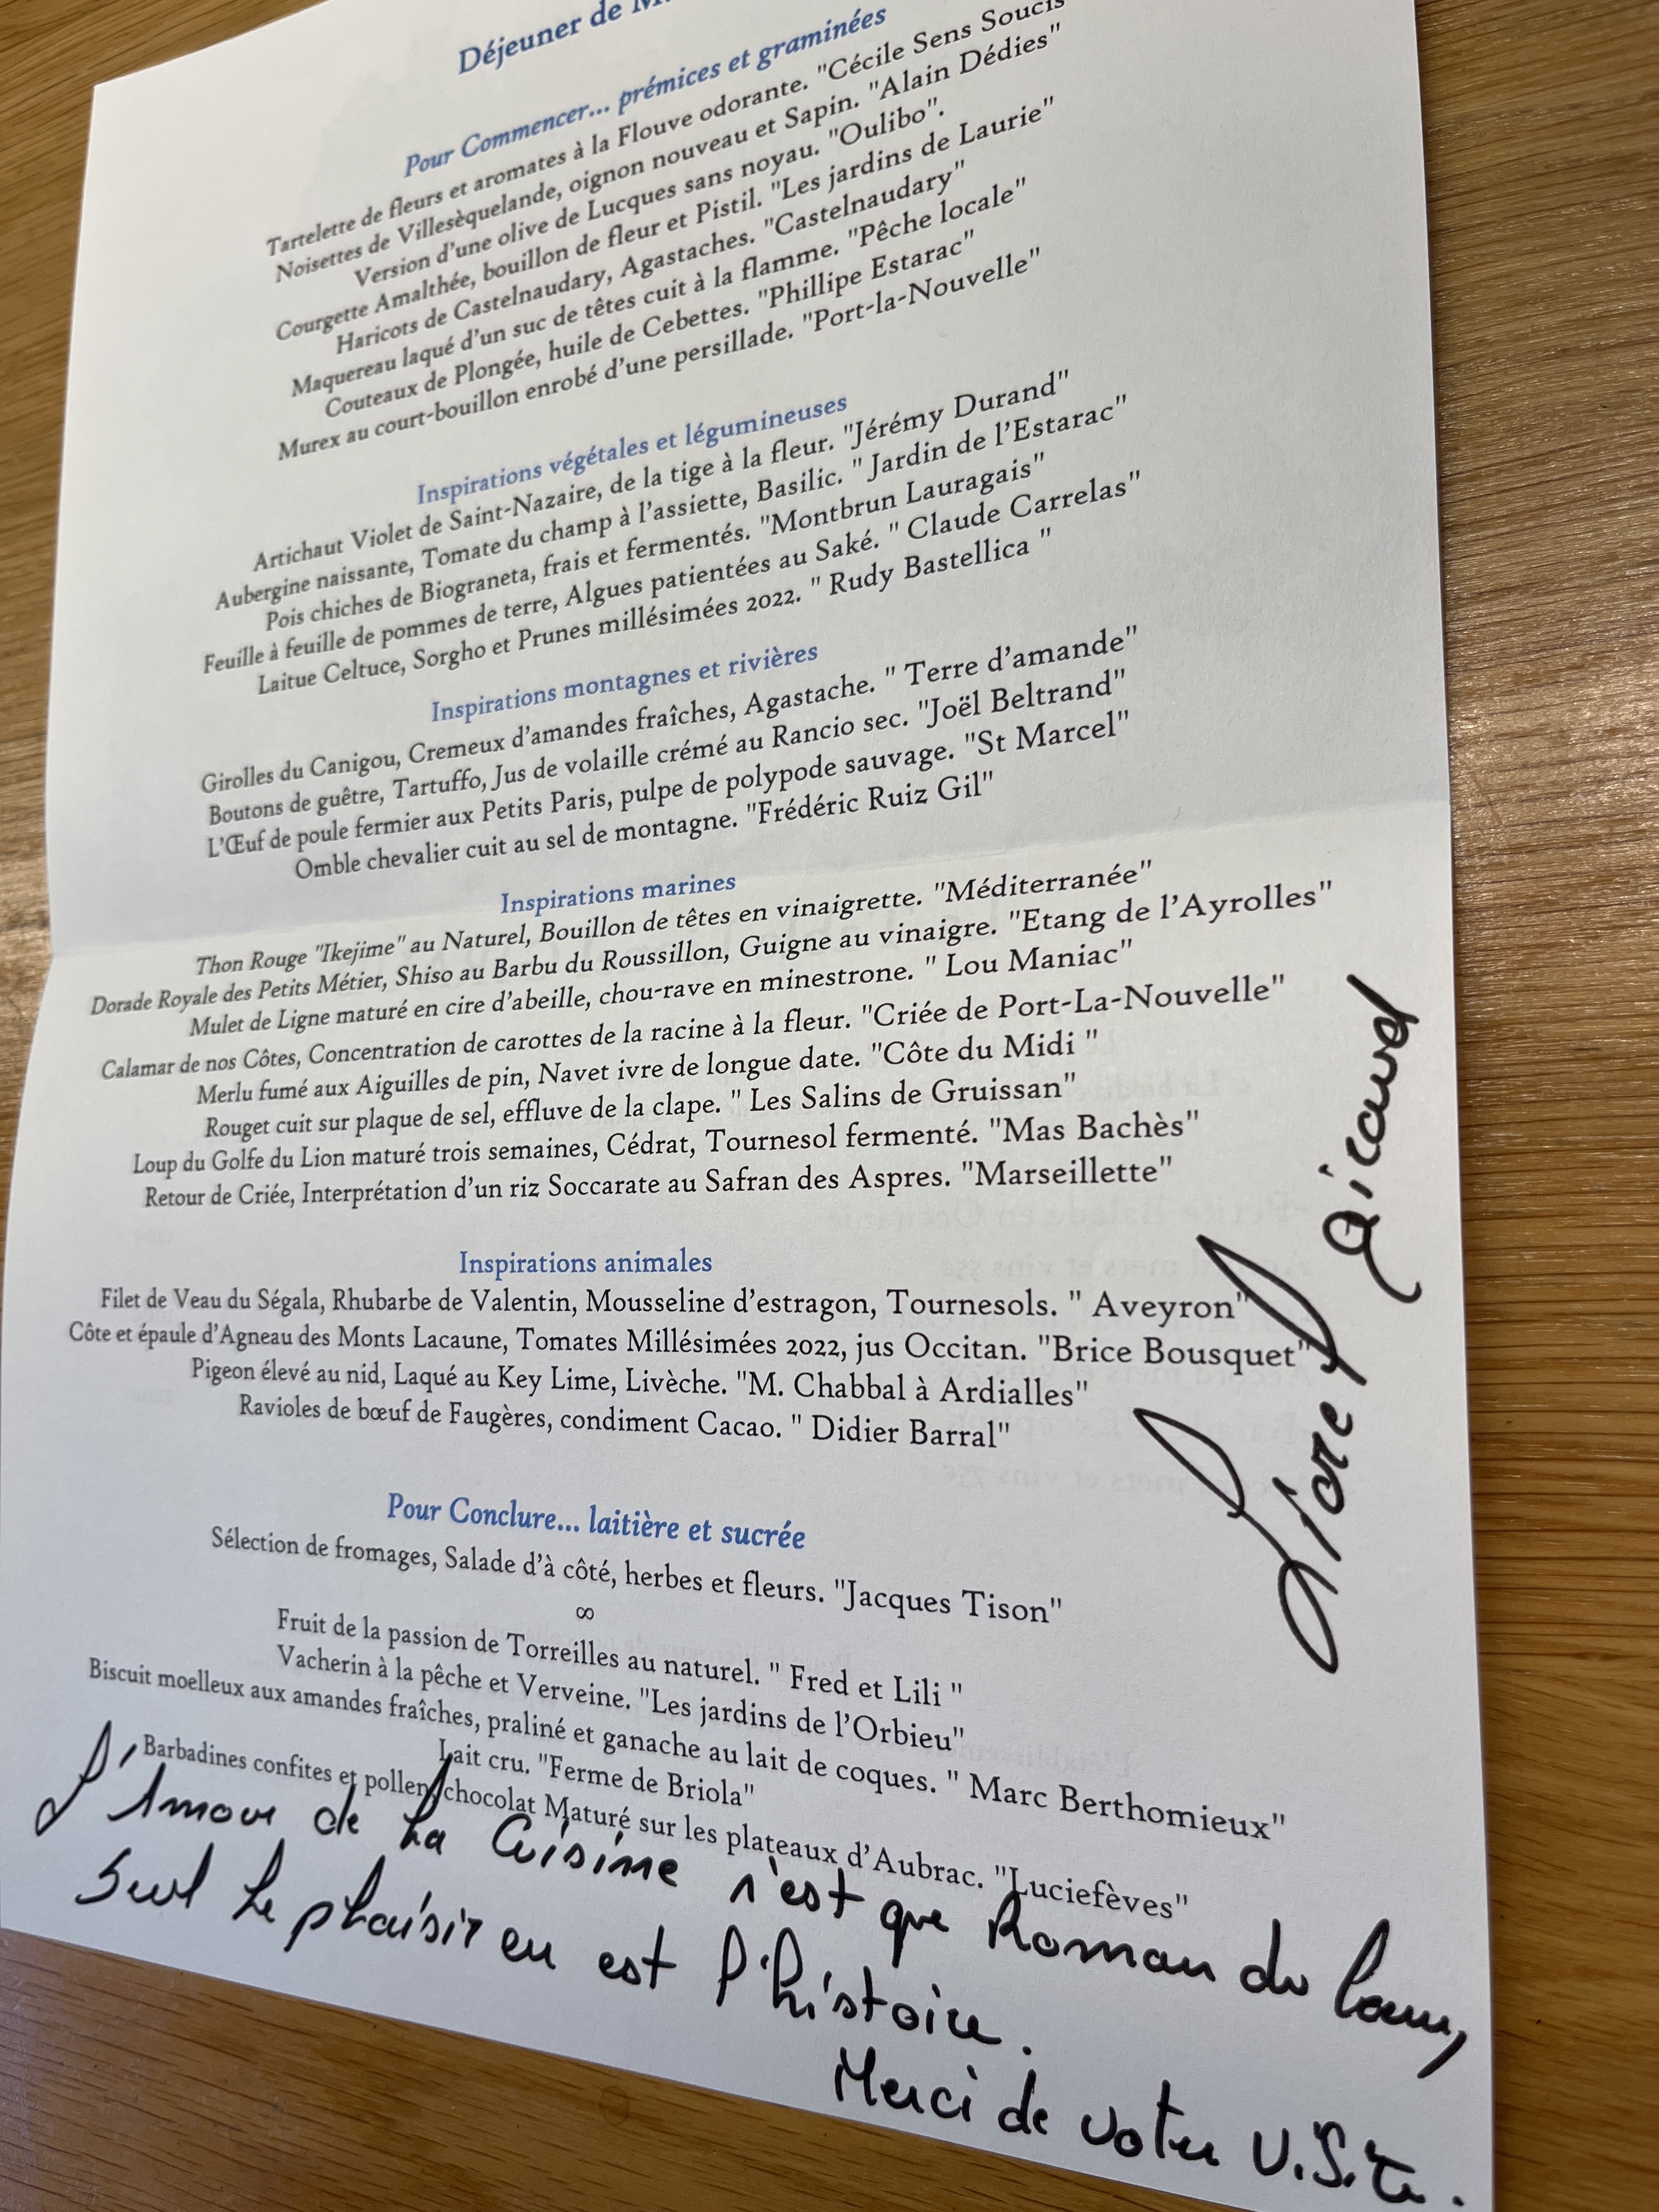 Déjeuner de
Pour Commencer... prémices et graminées
Tartelette de fleurs et aromates à la Flouve odorante. "Cécile Sens Soucis
Noisettes de Villesèquelande, oignon nouveau et Sapin. "Alain Dédies"
Version d'une olive de Lucques sans noyau. "Oulibo".
Courgette Amalthée, bouillon de fleur et Pistil. "Les jardins de Laurie"
Haricots de Castelnaudary, Agastaches. "Castelnaudary"
Maquereau laqué d'un suc de têtes cuit à la flamme. "Pêche locale"
Couteaux de Plongée, huile de Cebettes. "Phillipe Estarac"
Murex au court-bouillon enrobé d'une persillade. "Port-la-Nouvelle"
Inspirations végétales et légumineuses
Artichaut Violet de Saint-Nazaire, de la tige à la fleur. "Jérémy Durand"
Aubergine naissante, Tomate du champ à l'assiette, Basilic. " Jardin de l'Estarac"
Pois chiches de Biograneta, frais et fermentés. "Montbrun Lauragais"
Feuille à feuille de pommes de terre, Algues patientées au Saké. " Claude Carrelas"
Laitue Celtuce, Sorgho et Prunes millésimées 2022. " Rudy Bastellica "
Inspirations montagnes et rivières
Girolles du Canigou, Cremeux d'amandes fraîches, Agastache. " Terre d'amande"
Boutons de guêtre, Tartuffo, Jus de volaille crémé au Rancio sec. "Joël Beltrand"
L'Œuf de poule fermier aux Petits Paris, pulpe de polypode sauvage. "St Marcel"
Omble chevalier cuit au sel de montagne. "Frédéric Ruiz Gil"
Inspirations marines
Thon Rouge "Ikejime" au Naturel, Bouillon de têtes en vinaigrette. "Méditerranée"
Dorade Royale des Petits Métier, Shiso au Barbu du Roussillon, Guigne au vinaigre. "Etang de l'Ayrolles"
Mulet de Ligne maturé en cire d'abeille, chou-rave en minestrone. " Lou Maniac"
Calamar de nos Côtes, Concentration de carottes de la racine à la fleur. "Criée de Port-La-Nouvelle"
Merlu fumé aux Aiguilles de pin, Navet ivre de longue date. "Côte du Midi "
Rouget cuit sur plaque de sel, effluve de la clape. " Les Salins de Gruissan"
Loup du Golfe du Lion maturé trois semaines, Cédrat, Tournesol fermenté. "Mas Bachès"
Retour de Criée, Interprétation d'un riz Soccarate au Safran des Aspres. "Marseillette"
Inspirations animales
Filet de Veau du Ségala, Rhubarbe de Valentin, Mousseline d'estragon, Tournesols. " Aveyron"
Côte et épaule d'Agneau des Monts Lacaune, Tomates Millésimées 2022, jus Occitan. "Brice Bousquet"
Pigeon élevé au nid, Laqué au Key Lime, Livèche. "M. Chabbal à Ardialles"
Ravioles de bœuf de Faugères, condiment Cacao. " Didier Barral"
Pour Conclure... laitière et sucrée
Sélection de fromages, Salade d'à côté, herbes et fleurs. "Jacques Tison"
∞
Fruit de la passion de Torreilles au naturel. " Fred et Lili "
Vacherin à la pêche et Verveine. "Les jardins de l'Orbieu"
Biscuit moelleux aux amandes fraîches, praliné et ganache au lait de coques. " Marc Berthomieux"
Lait cru. "Ferme de Briola"
Barbadines confites et pollen, chocolat Maturé sur les plateaux d'Aubrac. "Luciefèves"
L'Amour de La Cuisine n'est que Roman du Coeur,
Seul Le plaisir en est l'histoire.
Merci de votre visite.